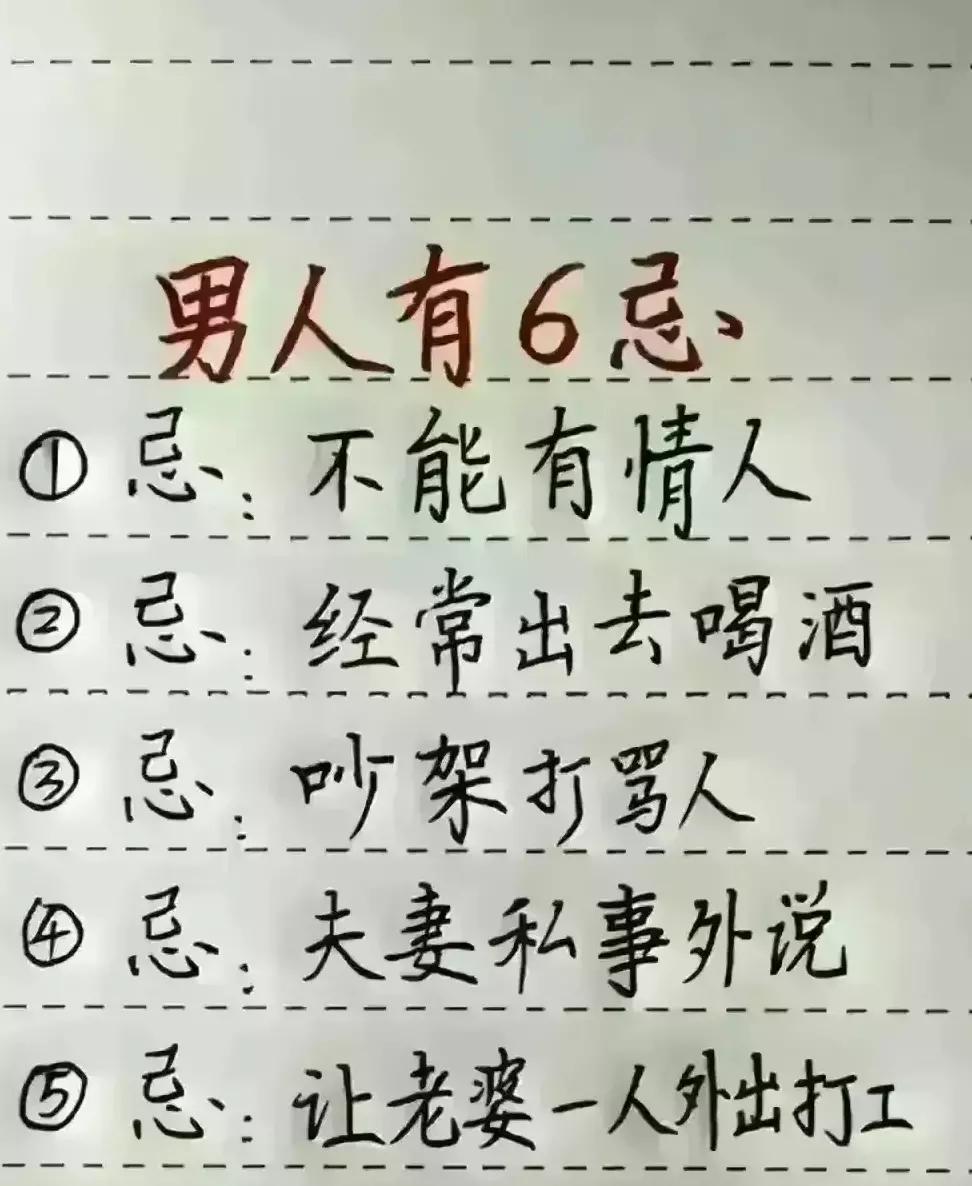 男人有6忌
①忌:不能有情人
②忌:经常出去喝酒
③忌:吵架打骂人
④忌:夫妻私事外说
⑤忌:让老婆一人外出打工